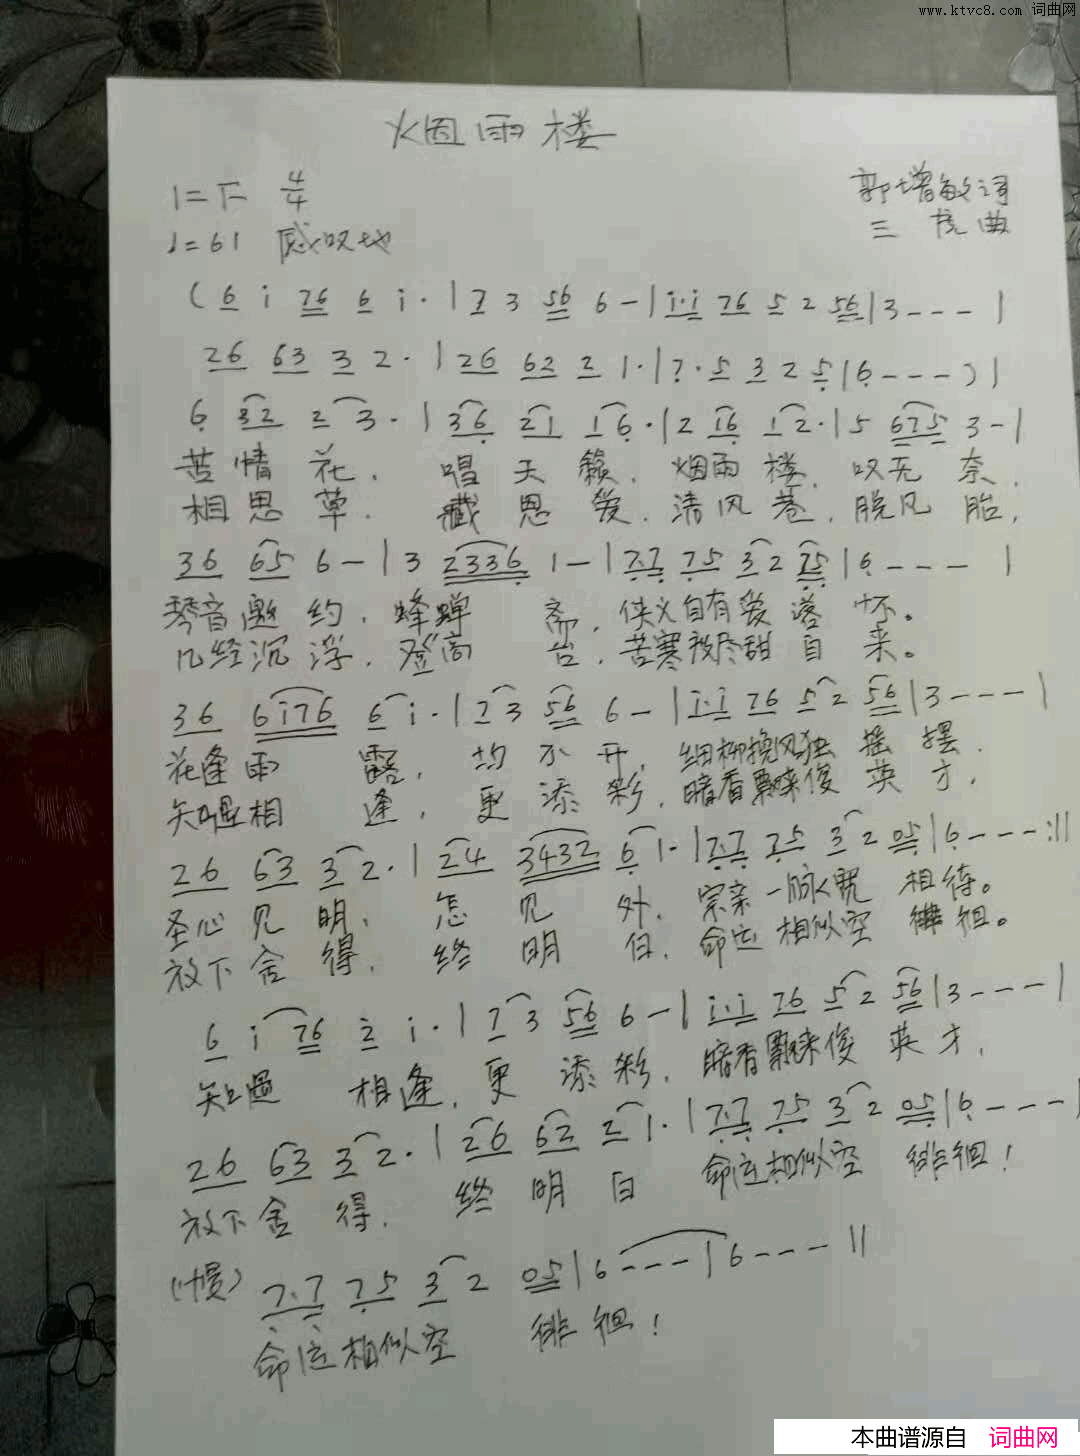 www.ktvc8.com 词曲网
烟雨楼
1=F 4/4 郭增敏词
♩=61 感叹地 三 曲
( 6 i 76 6 i · | 7 3 56 6 - | i · i 76 5 2 56 | 3 - - - |
26 63 3 2 · | 26 62 2 1 · | 7 · 5 3 2 5 | 6 - - - ) |
6 32 2 3 · | 36 21 1 6 · | 2 16 1 2 · | 5 675 3 - |
苦情花, 唱天籁, 烟雨楼, 叹无奈,
相思草, 藏恩爱, 清风苍, 脱凡胎,
36 65 6 - | 3 2336 1 - | 7·7 75 3 2 75 | 6 - - - |
琴音邀约, 蜂蝉斋, 侠义自有爱落怀。
几经沉浮, 登高台, 苦寒散尽甜自来。
36 6i76 6 i · | 7 3 56 6 - | i·i 76 5 2 56 | 3 - - - |
花逢雨露, 均不开, 细柳挽风独摇摆,
知遇相逢, 更添彩, 暗香飘来俊英才,
26 63 3 2 · | 24 3432 6 1 · | 7·7 75 3 2 05 | 6 - - - :||
圣心见明, 怎见外, 宗亲一脉 相待。
放下舍得, 终明白, 命运相似空徘徊。
6 i 76 2 i · | 7 3 56 6 - | i·i 76 5 2 56 | 3 - - - |
知遇相逢, 更添彩, 暗香飘来俊英才,
26 63 3 2 · | 26 62 2 1 · | 7·7 75 3 2 05 | 6 - - - |
放下舍得, 终明白 命运相似空徘徊!
(慢) 7·7 75 3 2 05 | 6 - - - | 6 - - - ||
命运相似空徘徊!
本曲谱源自 词曲网